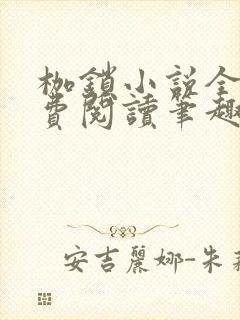 枷鎖小説全
費閱讀筆趣
安吉麗娜-朱